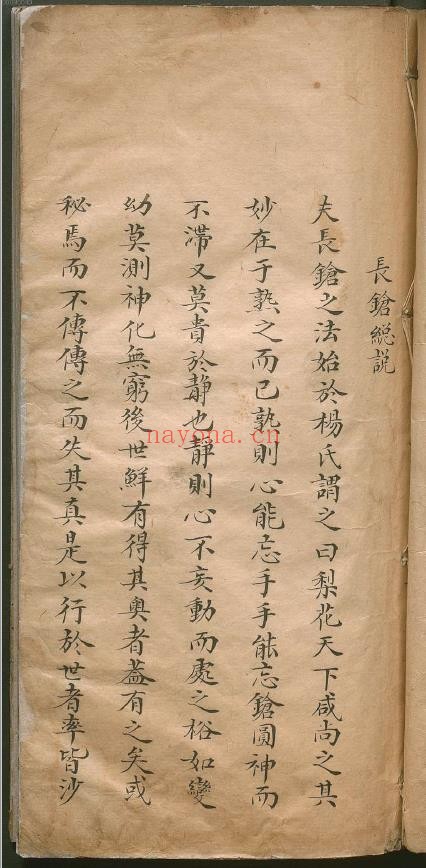 長鎗総説
夫長鎗之法始於楊氏謂之曰梨花天下咸尚之其
妙在于熟之而已孰則心能忘手手能忘鎗圓神而
不滯又莫貴於静也靜則心不妄動而處之裕如變
幼莫測神化無窮後世鮮有得其奥者葢有之矣或
秘焉而不傳傳之而失其真是以行於世者率皆沙
nayona.cn